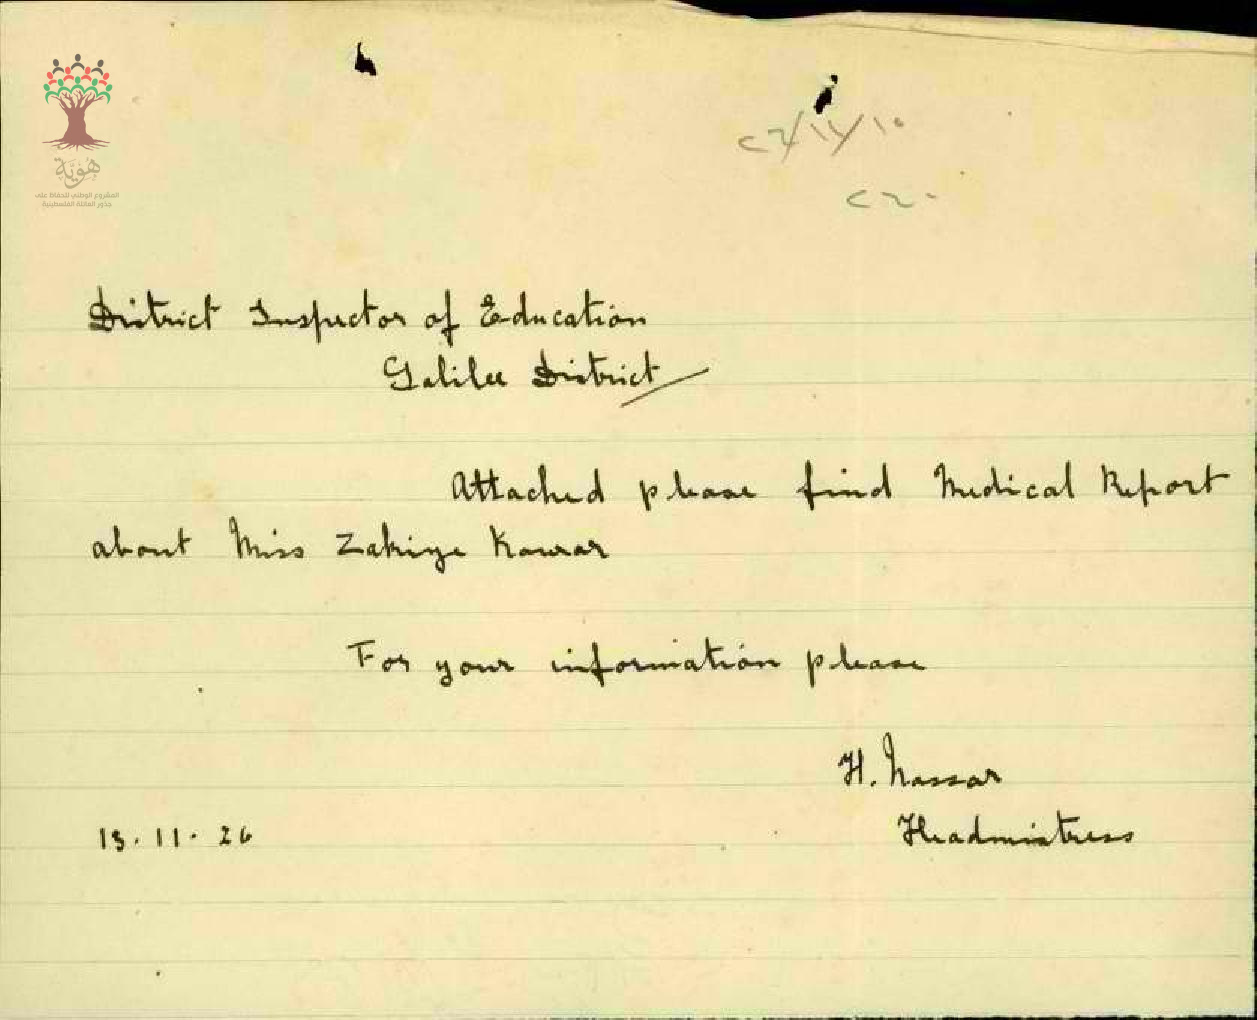 هُويَّة
المشروع الوطني للحفاظ على
جذور العائلة الفلسطينية
District Inspector of Education
Galilee District
Attached please find Medical Report
about Miss Zakiye Kawar
For your information please
H. Nassar
Headmistress
13.11.26